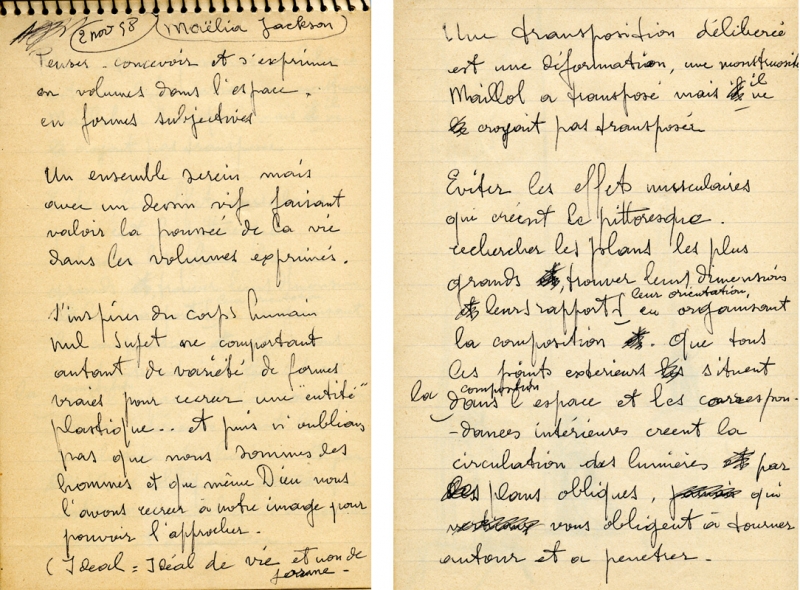 2 nov 58 (Maëlia Jackson)
Penser - concevoir et s'exprimer
en volumes dans l'espace.
en formes subjectives
Un ensemble serein mais
avec un dessin vif faisant
valoir la poussée de la vie
dans les volumes exprimés.
S'inspirer du corps humain
nul sujet ne comportant
autant de variété de formes
vraies pour recreer une "entité"
plastique... et puis n'oublions
pas que nous sommes des
hommes et que même Dieu nous
l'avons recreer à notre image pour
pouvoir l'approcher.
(Ideal = Idéal de vie et non de
forme -
Une transposition délibérée
est une déformation, une monstruosité
Maillol a transposé mais il ne
croyait pas transposer
Eviter les effets musculaires
qui créent le pittoresque.
rechercher les plans les plus
grands, trouver leurs dimensions
leurs rapports leur orientation,
en organisant
la composition. Que tous
les points exterieurs situent
la composition
dans l'espace et les correspon-
-dances intérieures creent la
circulation des lumieres par
des plans obliques, qui
vous obligent à tourner
autour et a penetrer.